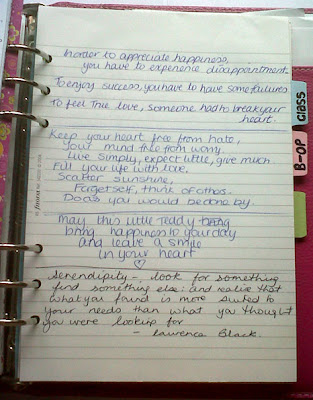 In order to appreciate happiness,
you have to experience disappointment.
To enjoy success, you have to have some failures
To feel True love, someone had to break your
heart.
Keep your heart free from hate,
Your mind free from worry
Live Simply, expect little, give much
Fill your life with love,
Scatter sunshine,
Forget self, think of others.
Do as you would be done by.
May this little teddy being
bring happiness to your day
and leave a smile
in your heart
Serendipity - look for something
find something else: and realise that
what you found is more suited to
your needs than what you thought
you were looking for
- Lawrence Block.
class
B-OP
filofax